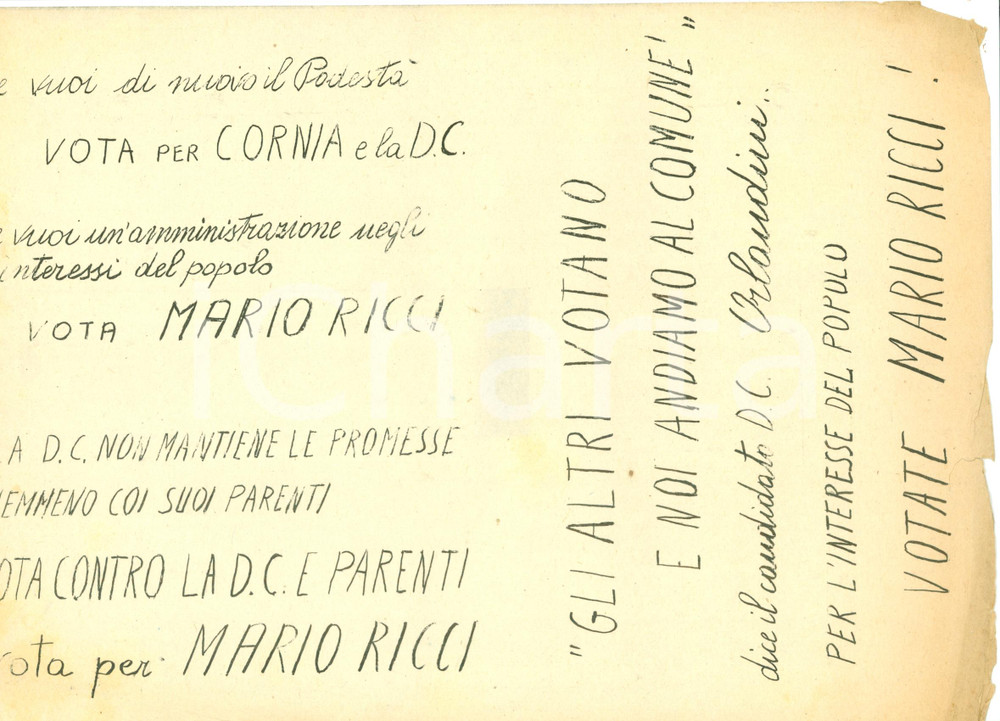 e vuoi di nuovo il Podestà
VOTA PER CORNIA e la D.C.
e vuoi un'amministrazione negli
interessi del popolo
VOTA MARIO RICCI
LA D.C. NON MANTIENE LE PROMESSE
NEMMENO COI SUOI PARENTI
OTA CONTRO LA D.C. E PARENTI
vota per MARIO RICCI
"GLI ALTRI VOTANO
E NOI ANDIAMO AL COMUNE"
dice il candidato D.C. Orlandini..
PER L'INTERESSE DEL POPULO
VOTATE MARIO RICCI!
iCharta